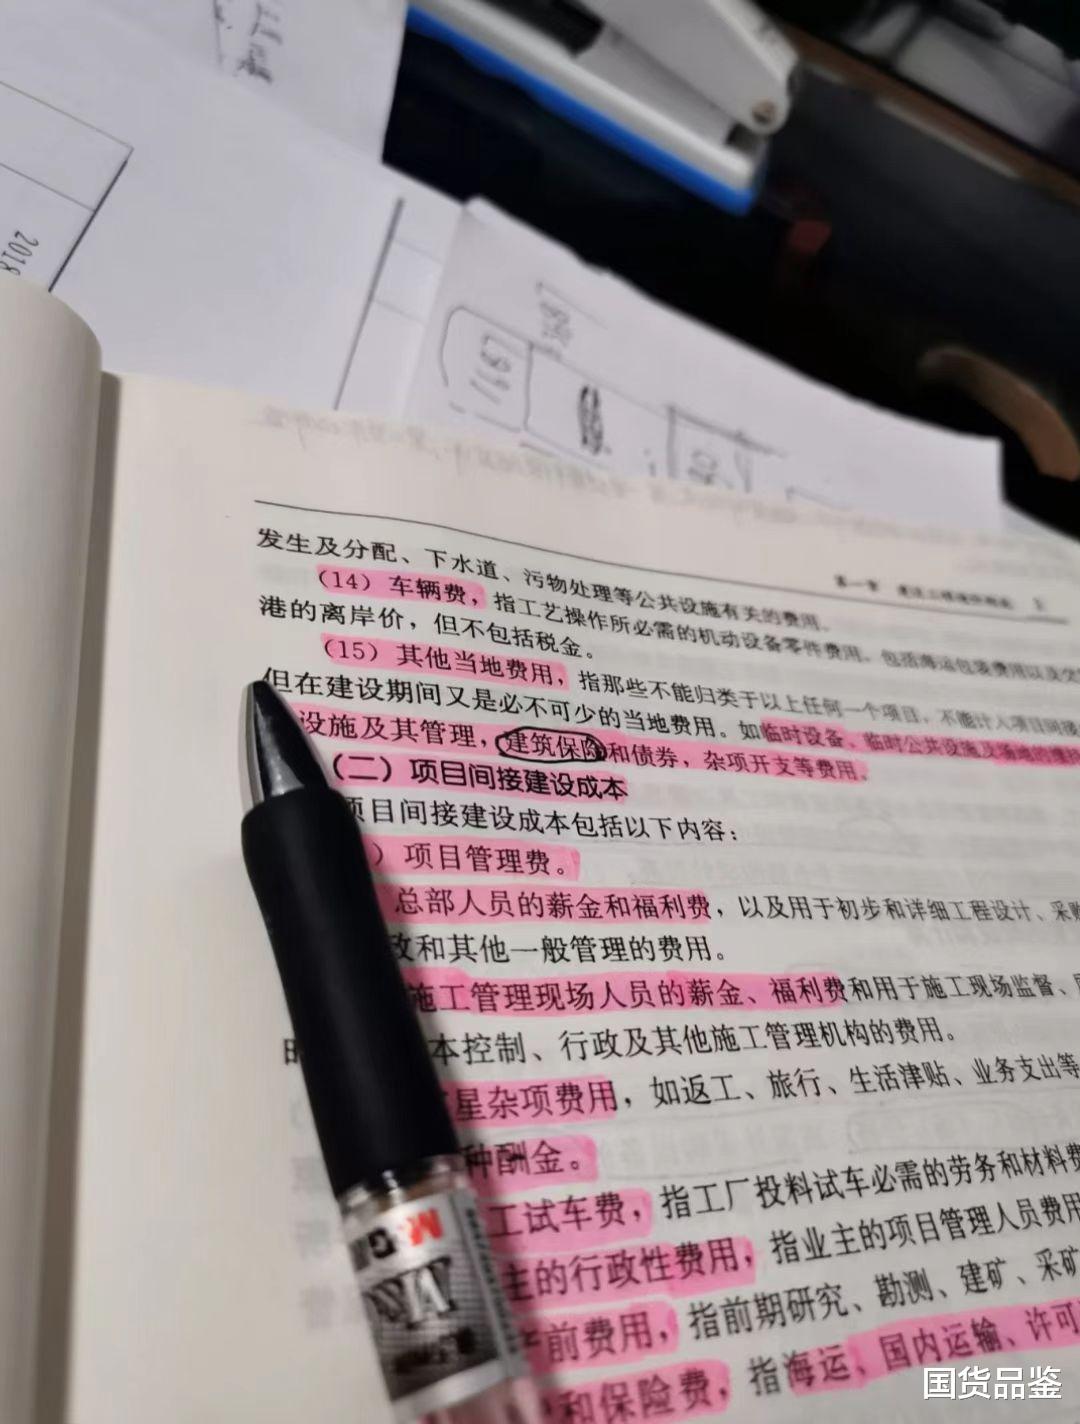 2018
发生及分配、下水道、污物处理等公共设施有关的费用。
(14) 车辆费，指工艺操作所必需的机动设备零件费用，包括海运包装费用以及
港的离岸价，但不包括税金。
(15) 其他当地费用，指那些不能归类于以上任何一个项目，不能计入项目间接
但在建设期间又是必不可少的当地费用。如临时设备、临时公共设施及场地的
设施及其管理，建筑保险和债券，杂项开支等费用。
(二) 项目间接建设成本
项目间接建设成本包括以下内容：
) 项目管理费。
总部人员的薪金和福利费，以及用于初步和详细工程设计、采购
和其他一般管理的费用。
施工管理现场人员的薪金、福利费和用于施工现场监督、
本控制、行政及其他施工管理机构的费用。
星杂项费用，如返工、旅行、生活津贴、业务支出等
种酬金。
工试车费，指工厂投料试车必需的劳务和材料费
主的行政性费用，指业主的项目管理人员费用
前费用，指前期研究、勘测、建矿、采矿
和保险费，指海运、国内运输、许可
M&G
国货品鉴